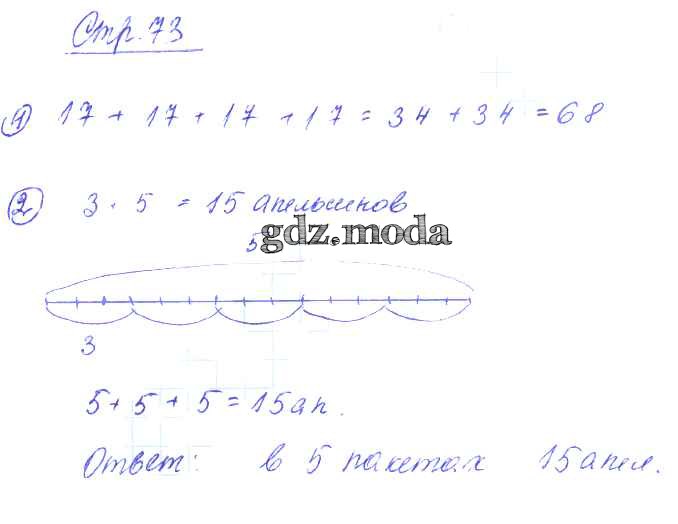 Стр. 73
1) 17 + 17 + 17 + 17 = 34 + 34 = 68
2) 3 · 5 = 15 апельсинов
5
gdz.moda
3
5 + 5 + 5 = 15 ап.
Ответ: в 5 пакетах 15 апел.